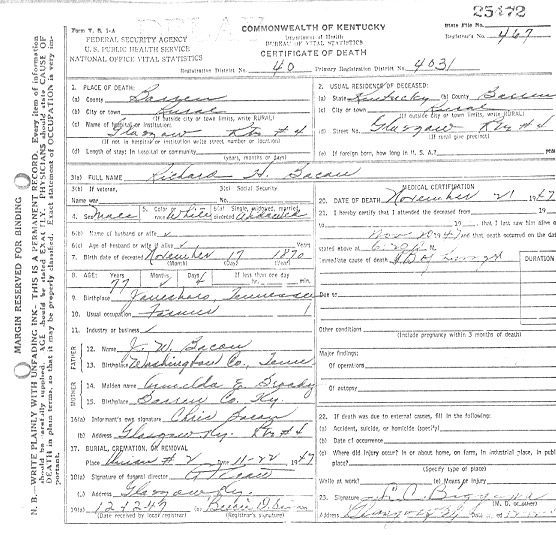 25472
Form V. S. 1-A
COMMONWEALTH OF KENTUCKY
State File No.
FEDERAL SECURITY AGENCY
Department of Health
Registrar's No. 467
U. S. PUBLIC HEALTH SERVICE
BUREAU OF VITAL STATISTICS
NATIONAL OFFICE VITAL STATISTICS
CERTIFICATE OF DEATH
Registration District No. 40 Primary Registration District No. 4031
MARGIN RESERVED FOR BINDING
N. B.—WRITE PLAINLY WITH UNFADING INK—THIS IS A PERMANENT RECORD. Every item of information
should be carefully supplied. AGE should be stated EXACTLY. PHYSICIANS should state CAUSE OF
DEATH in plain terms so that it may be properly classified. Exact statement of OCCUPATION is very im-
portant.
1. PLACE OF DEATH:
(a) County Barren
(b) City or town Rural
(If outside city or town limits, write RURAL)
(c) Name of hospital or institution:
Glasgow Rt # 4
(If not in hospital or institution write street number or location)
(d) Length of stay: In hospital or community
(years, months or days)
2. USUAL RESIDENCE OF DECEASED:
(a) State Kentucky (b) County Barren
(c) City or town Rural
(If outside city or town limits, write RURAL)
(d) Street No. Glasgow Rt # 4
(If rural give precinct)
(e) If foreign born, how long in U. S. A.? years
3(a) FULL NAME Richard H. Bacon
3(b) If veteran, 3(c) Social Security
Name war No.
4. Sex Male 5. Color or race White 6(a) Single, widowed, married, divorced Widowed
6(b) Name of husband or wife
6(c) Age of husband or wife if alive
7. Birth date of deceased November 17 1870
(Month) (Day) (Year)
8. AGE: Years Months Days If less than one day
77 4 hr. min.
9. Birthplace Jonesboro, Tennessee
10. Usual occupation Farmer
11. Industry or business
FATHER
12. Name J. W. Bacon
13. Birthplace Washington Co., Tenn
MOTHER
14. Maiden name E.
15. Birthplace Barren Co. Ky.
16(a) Informant's own signature Chris Bacon
(b) Address Glasgow Ky. Rt # 4
17. BURIAL, CREMATION, OR REMOVAL
Place Union # 2 Date 11-22 1947
18(a) Signature of funeral director
(b) Address Glasgow Ky.
19(a) 12-1-247 (b)
(Date received by local registrar) (Registrar's signature)
MEDICAL CERTIFICATION
20. DATE OF DEATH November 21 1947
21. I hereby certify that I attended the deceased from 19
to 19 , that I last saw him alive on
Nov 20 1947 and that death occurred on the date
stated above at 6:20 M.
Immediate cause of death T B of Lungs
DURATION
Due to
Other conditions
(Include pregnancy within 3 months of death)
Major findings:
Of operations
Of autopsy
22. If death was due to external causes, fill in the following:
(a) Accident, suicide, or homicide (specify)
(b) Date of occurrence
(c) Where did injury occur? In or about home, on farm, in industrial place, in public
place?
(Specify type of place)
While at work? (e) Means of injury
23. Signature C. C.
(M. D. or other)
Address Glasgow Ky Date